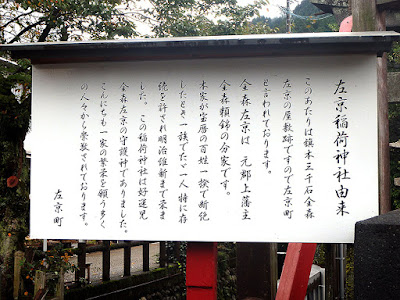 左京稲荷神社由来
このあたりは旗本三千石金森
左京の屋敷跡ですので左京町
と言われております。
金森左京は 元郡上藩主
金森頼錦の分家です。
本家が宝暦の百姓一揆で断絶
したとき一族でただ一人 特に存
続を許され明治維新まで栄ま
した。この稲荷神社は好運児
金森左京の守護神でありました。
こんにちも一家の繁栄を願う多く
の人々から崇敬されております。
左京町